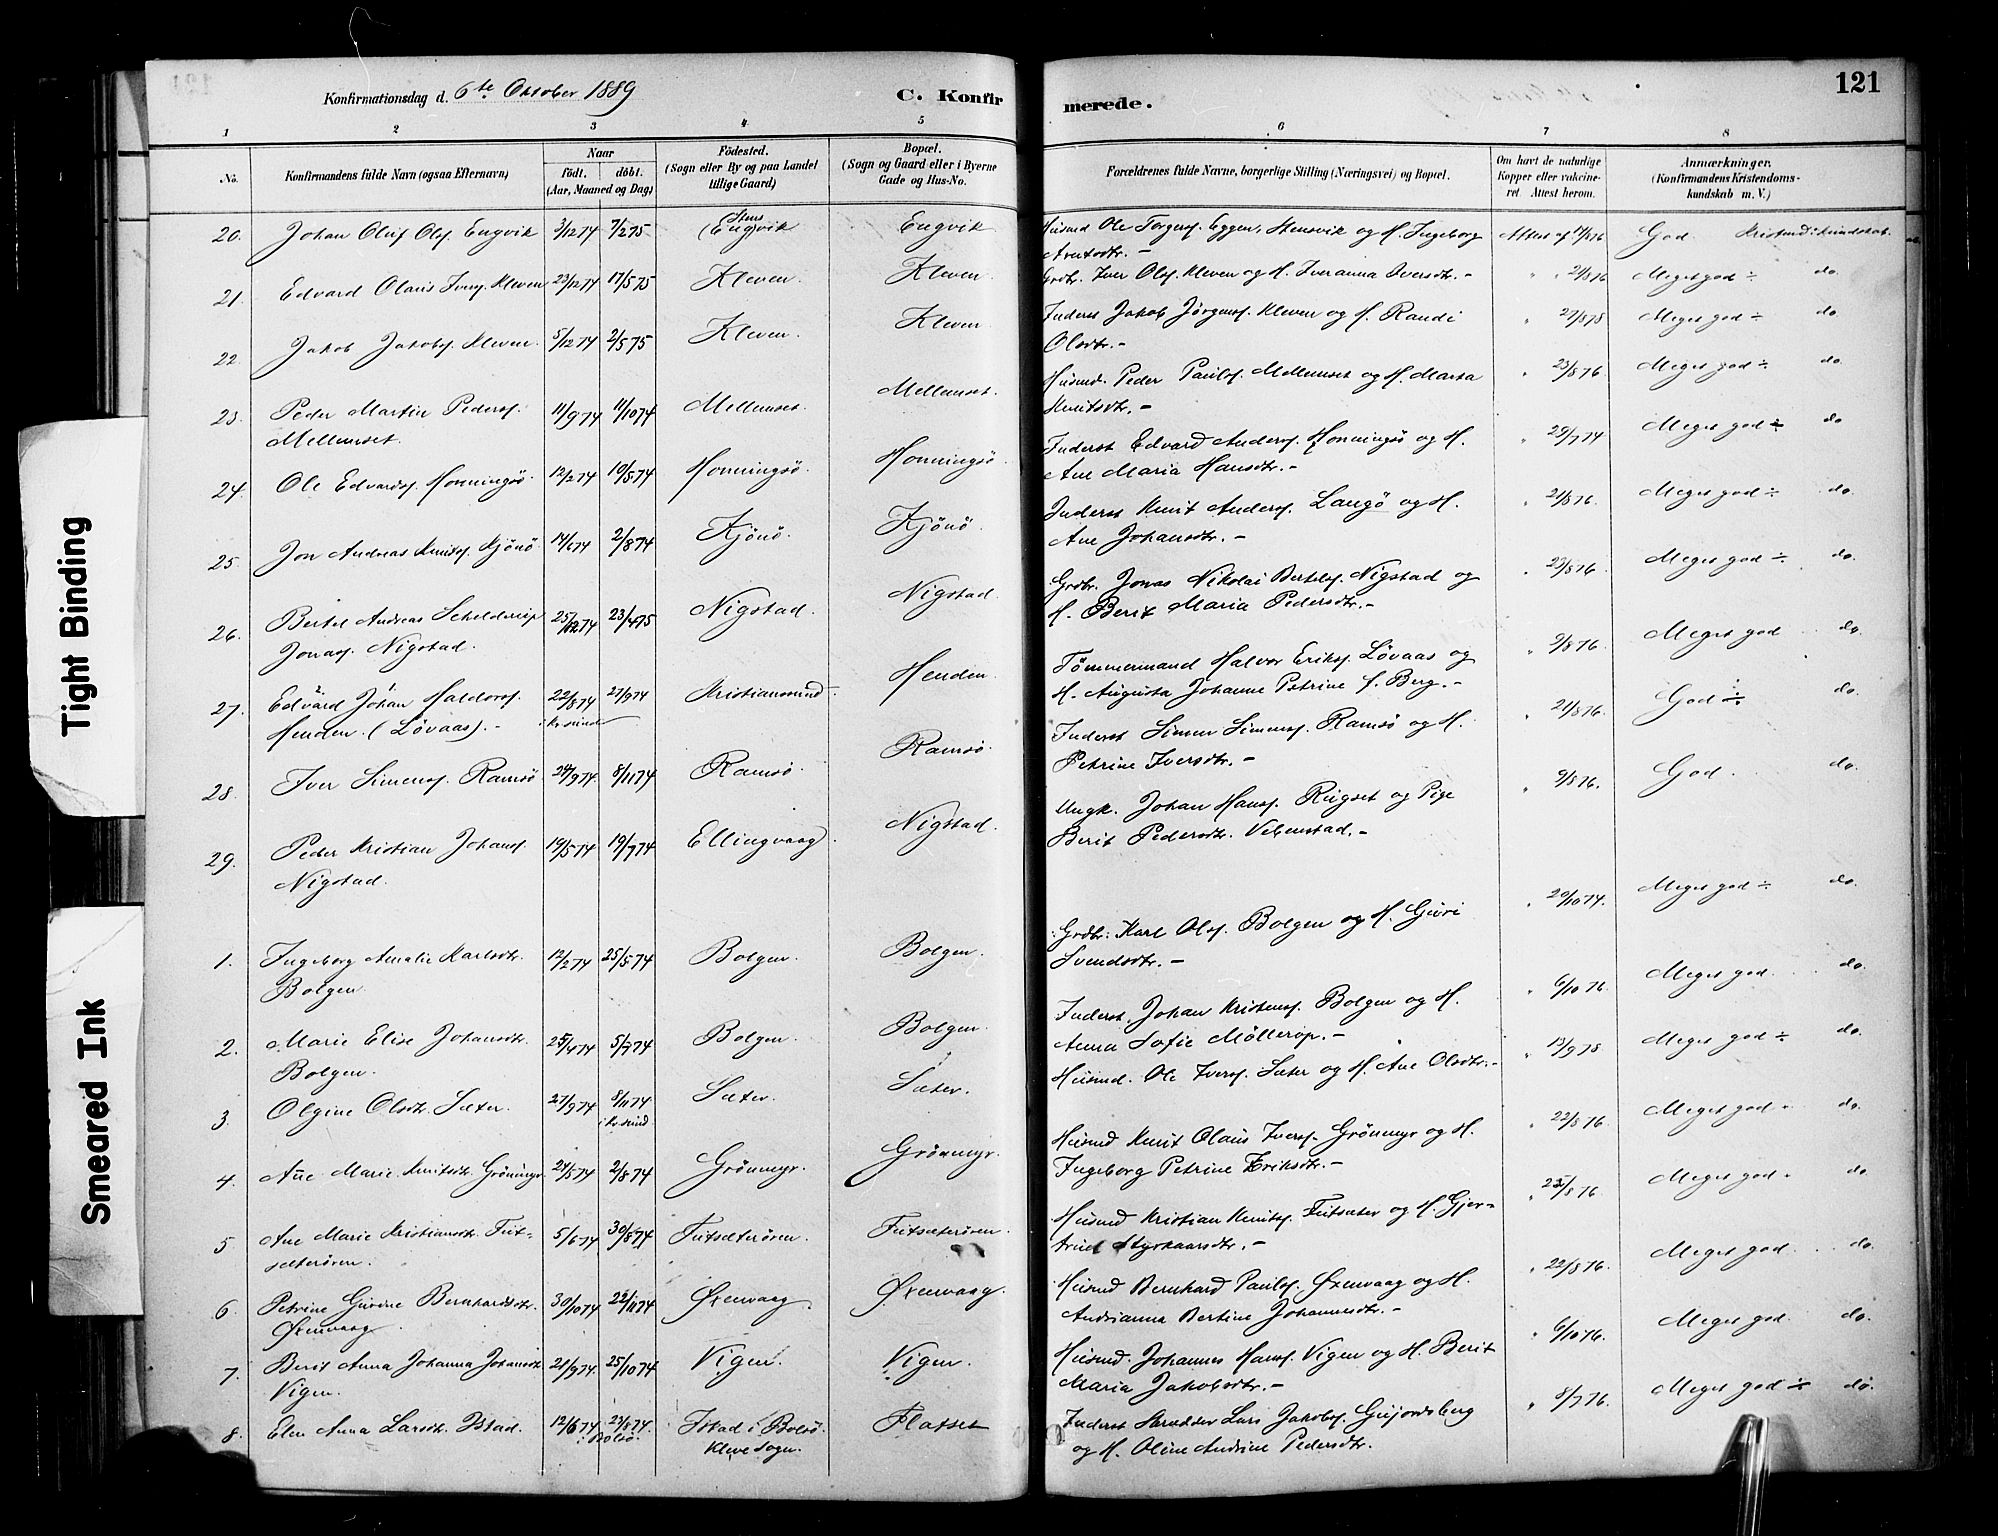 Konfirmationsdag d. 6te Oktober 1889
C. Konfirmerede.
121
1 2 3 4 5 6 7 8
No.
Konfirmandens fulde Navn (ogsaa Efternavn)
Naar
födt. döbt.
(Aar, Maaned og Dag)
Födested.
(Sogn eller By og paa Landet tillige Gaard)
Bopæl.
(Sogn og Gaard eller i Byerne Gade og Hus-No.
Forældrenes fulde Navne, borgerlige Stilling (Næringsvei) og Bopæl.
Om havt de naturlige Kopper eller vakcineret. Attest herom.
Anmærkninger.
(Konfirmandens Kristendomskundskab m. V.)
20. Johan Oluf Ols. Engvik 3/12 74 7/2 75 Stens (Eng)vik Engvik Husmd Ole Torgers. Eggen, Stensvik og H. Ingeborg Arntsdtr.- Attest af 17/8 76 God Kristend: kundskab.
21. Edvard Olaus Ivers. Kleven 23/12 74 17/5 75 Kleven. Kleven. Grdbr. Iver Ols. Kleven og H. Iveranna Iversdtr.- " " 21/8 76 Meget god ÷ do
22 Jakob Jakobs. Kleven. 5/12 74 2/5 75 Kleven. Kleven. Inderst Jakob Jörgens. Kleven og H. Randi Olsdtr.- " 27/8 78 Meget god ÷ do
23. Peder Martin Peders. Mellemset. 11/9 74 11/10 74 Mellemset. Mellemset. Husmd. Peder Pauls. Mellemset og H. Marta Knutsdtr.- " 23/8 76 Meget god ÷ do.
24. Ole Edvards. Honningsö. 12/2 74 10/5 74 Honningsö. Honningsö. Inderst Edvard Anders. Honningsö og H. Ane Maria Hansdtr.- " 29/7 74 Meget god ÷ do
25. Jon Andreas Knuts. Kjönö. 14/6 74 2/8 74 Kjönö. Kjönö. Inderst Knut Anders. Langö og H. Ane Johansdtr.- " 21/8 76. Meget god ÷ do.
26. Bertel Andreas Schelderup Jonas. Nigstad. 25/12 74 23/4 75 Nigstad. Nigstad. Grdbr. Jonas Nikolai Bertels. Nigstad og H. Berit Maria Pedersdtr.- " 23/8 76 Meget god ÷ do.
27. Edvard Johan Haldors. Henden. (Lövaas).- 22/8 74 27/9 74 i Kr.sund Kristianssund. Henden. Tömmermand Halvor Eriks. Lövaas og H. Augusta Johanne Petrine f. Berg.- " 9/8 76. Meget god do.
28. Iver Simens. Ramsö 24/9 74. 8/11 74 Ramsö. Ramsö. Inderst Simen Simens. Ramsö og H. Petrine Iversdtr.- " 21/8 76. God ÷ do.
29. Peder Kristian Johans. Nigstad. 19/5 74 19/7 74 Ellingvaag Nigstad. Ungk. Johan Hans. Rugset og Pige Berit Pedersdtr. Vebenstad.- " 9/8 76. God. do.
1. Ingeborg Amalie Karlsdtr. Bolgen. 12/2 74 25/5 74 Bolgen. Bolgen. Grdbr: Karl Ols. Bolgen og H. Guri Svendsdtr.- " 20/10 74. Meget god ÷ do.
2. Marie Elise Johansdtr. Bolgen. 25/4 74 5/7 74 Bolgen. Bolgen. Inderst Johan Kristens. Bolgen og H. Anna Sofie Möllerop.- " 6/10 76. Meget god. do.
3. Olgine Olsdtr. Sæter. 27/9 74 8/11 74 i Kr.sund. Sæter. Sæter. Husmd. Ole Ivers. Sæter og H. Ane Olsdtr.- " 13/9 78 Meget god ÷ do.
4. Ane Marie Knutsdtr. Grönmyr. 24/5 74 2/8 74 Grönmyr. Grönmyr. Husmd Knut Olaus Ivers. Grönmyr og H. Ingeborg Petrine Eriksdtr.- " 22/8 76. Meget god do.
5 Ane Marie Kristiansdtr. Futsæterören. 5/6 74 30/8 74 Futsæterören. Futsæterören. Husmd Kristian Knuts. Futsæter og H. Gjertrud Styrkaarsdtr.- " 23/8 76. Meget god. do
6. Petrine Gurine Bernhardsdtr. Øxenvaag. 30/10 74 22/11 74 Øxenvaag. Øxenvaag. Husmd Bernhard Pauls. Øxenvaag og H. Andrianna Bertine Johannesdtr.- " 22/8 76. Meget god. do.
7. Berit Anna Johanna Johansdtr. Vigen. 21/9 74 25/10 74 Vigen. Vigen. Husmd. Johannes Hans. Vigen og H. Berit Maria Jakobsdtr.- " 6/10 76. Meget god. do.
8. Elen Anna Larsdtr. Istad. 12/6 74 23/8 74. i Bolsö. Istad i Bolsö. Kleve Sogn. Flatset Inderst Skrædder Lars Jakobs. Gujordsberg og H. Oline Andrine Pedersdtr. " 8/7 76. Meget god ÷ do.
Tight Binding
Smeared Ink